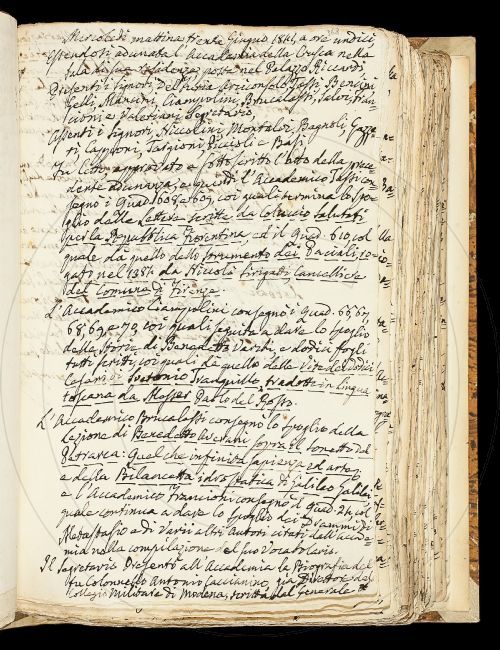 Mercoledì mattina trenta Giugno 1841, a ore undici,
Essendosi adunata l'Accademia della Crusca nella
sala di sua residenza posta nel Palazzo Riccardi,
Presenti i Signori Del Furia Arciconsolo, Tassi, Bencini
Gelli, Manzini, Ciampolini, Brucalassi, Salvi, Fran-
cioni e Valeriani Segretario
Assenti i Signori, Niccolini, Montalvi, Bagnoli, Gazze-
ri, Capponi, Targioni, Rigoli e Basi,
Fu letto approvato e sottoscritto l'atto della prece-
dente adunanza; e quindi l'Accademico Tassi con-
segnò i Quad. 608 e 609, coi quali termina lo spo-
glio delle Lettere scritte da Coluccio Salutati
per la Repubblica Fiorentina, ed il Quad. 610, col
quale dà quello dello strumento dei Paciali, ro-
gato nel 1384 da Niccolà Tirigatti, Cancelliere
del Comune di Firenze.
L'Accademico Ciampolini consegnò i Quad. 66, 67,
68, 69, e 70, coi quali seguita a dare lo spoglio
della Storia di Benedetto Varchi e dodici fogli
tutti scritti, coi quali dà quello delle Vite dei dodici
Cesari di Svetonio Tranquillo, tradotte in lingua
toscana da Messer Paolo del Rosso.
L'Accademico Brucalassi consegnò lo spoglio della
Lezione di Benedetto Averani sopra il sonetto del
Petrarca: Quel che infinita sapienza ed arte;
e della Bilancetta idrostatica di Galileo Galilei
e l'Accademico Francioni consegnò il Quad. 24, col
quale continua a dare lo spoglio dei Drammi di
Metastasio e di varii altri Autori citati dall'Acca-
mia nella compilazione del suo Vocabolario.
Il Segretario presentò all'Accademia la Biografia del
fu Colonnello Antonio Caccianino, già Direttore del
Collegio Militare di Modena, scritta dal Generale